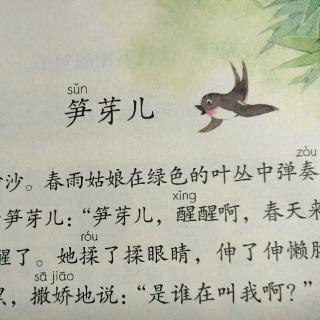 sǔn
笋芽儿
zòu
沙。春雨姑娘在绿色的叶丛中弹奏
xǐng
笋芽儿：“笋芽儿，醒醒啊，春天来
róu
醒了。她揉了揉眼睛，伸了伸懒
sā jiāo
撒娇地说：“是谁在叫我啊？”